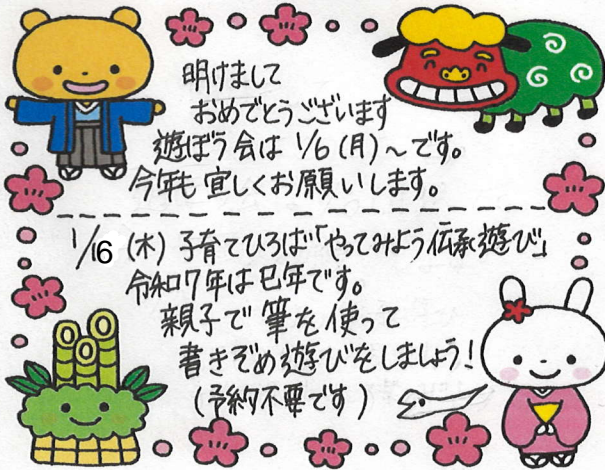 明けまして
おめでとうございます
遊ぼう会は 1/6(月)～です。
今年も宜しくお願いします。
1/16(木)子育てひろば「やってみよう伝承遊び」
令和7年は巳年です。
親子で筆を使って
書きぞめ遊びをしましょう!
(予約不要です)